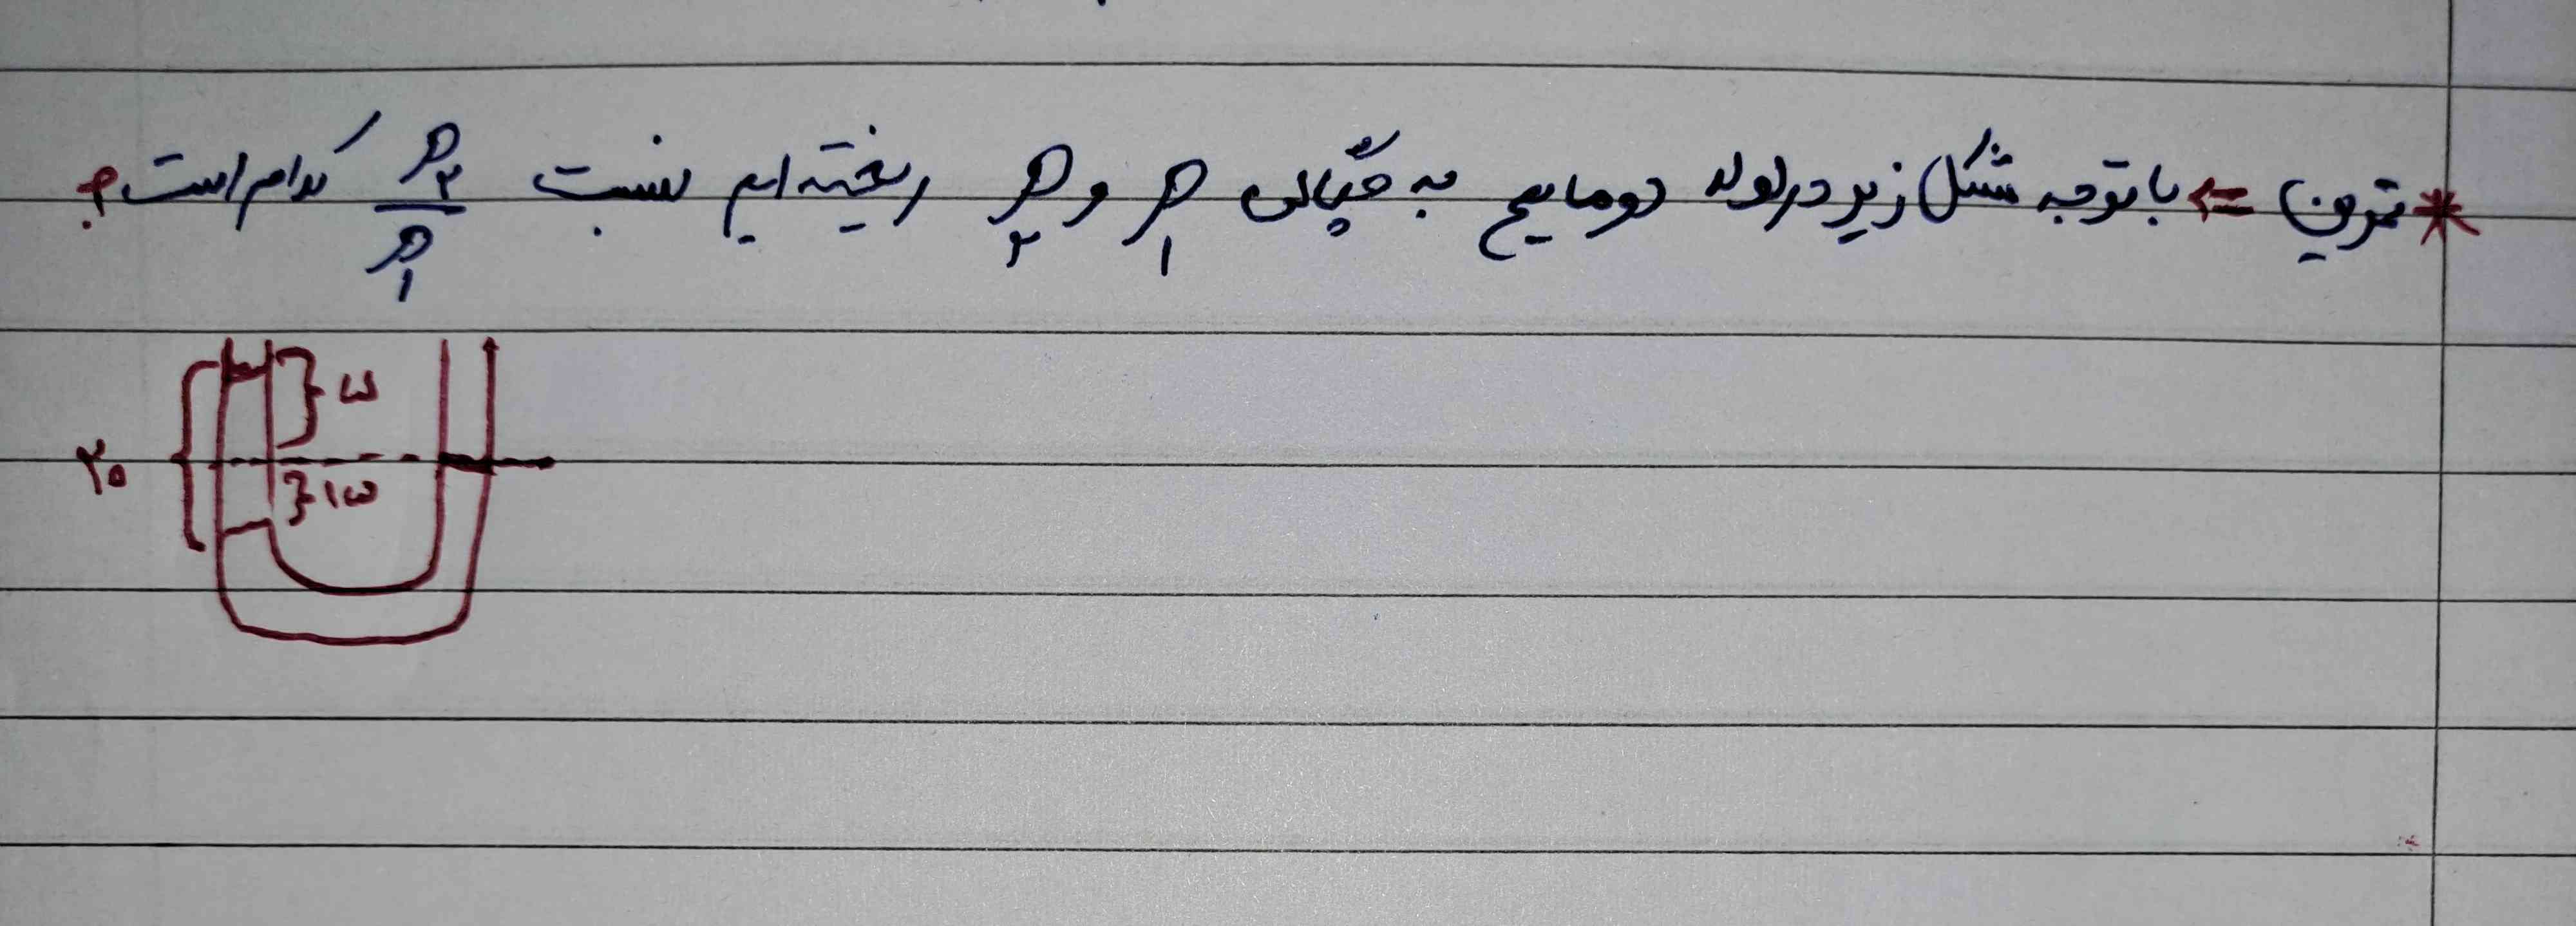 * تمرین <= با توجه شکل زیر در لوله دو مایع به چگالی ρ۱ و ρ۲ ریخته ایم نسبت ρ۲/ρ۱ کدام است؟
۵
۲۰
۱۵